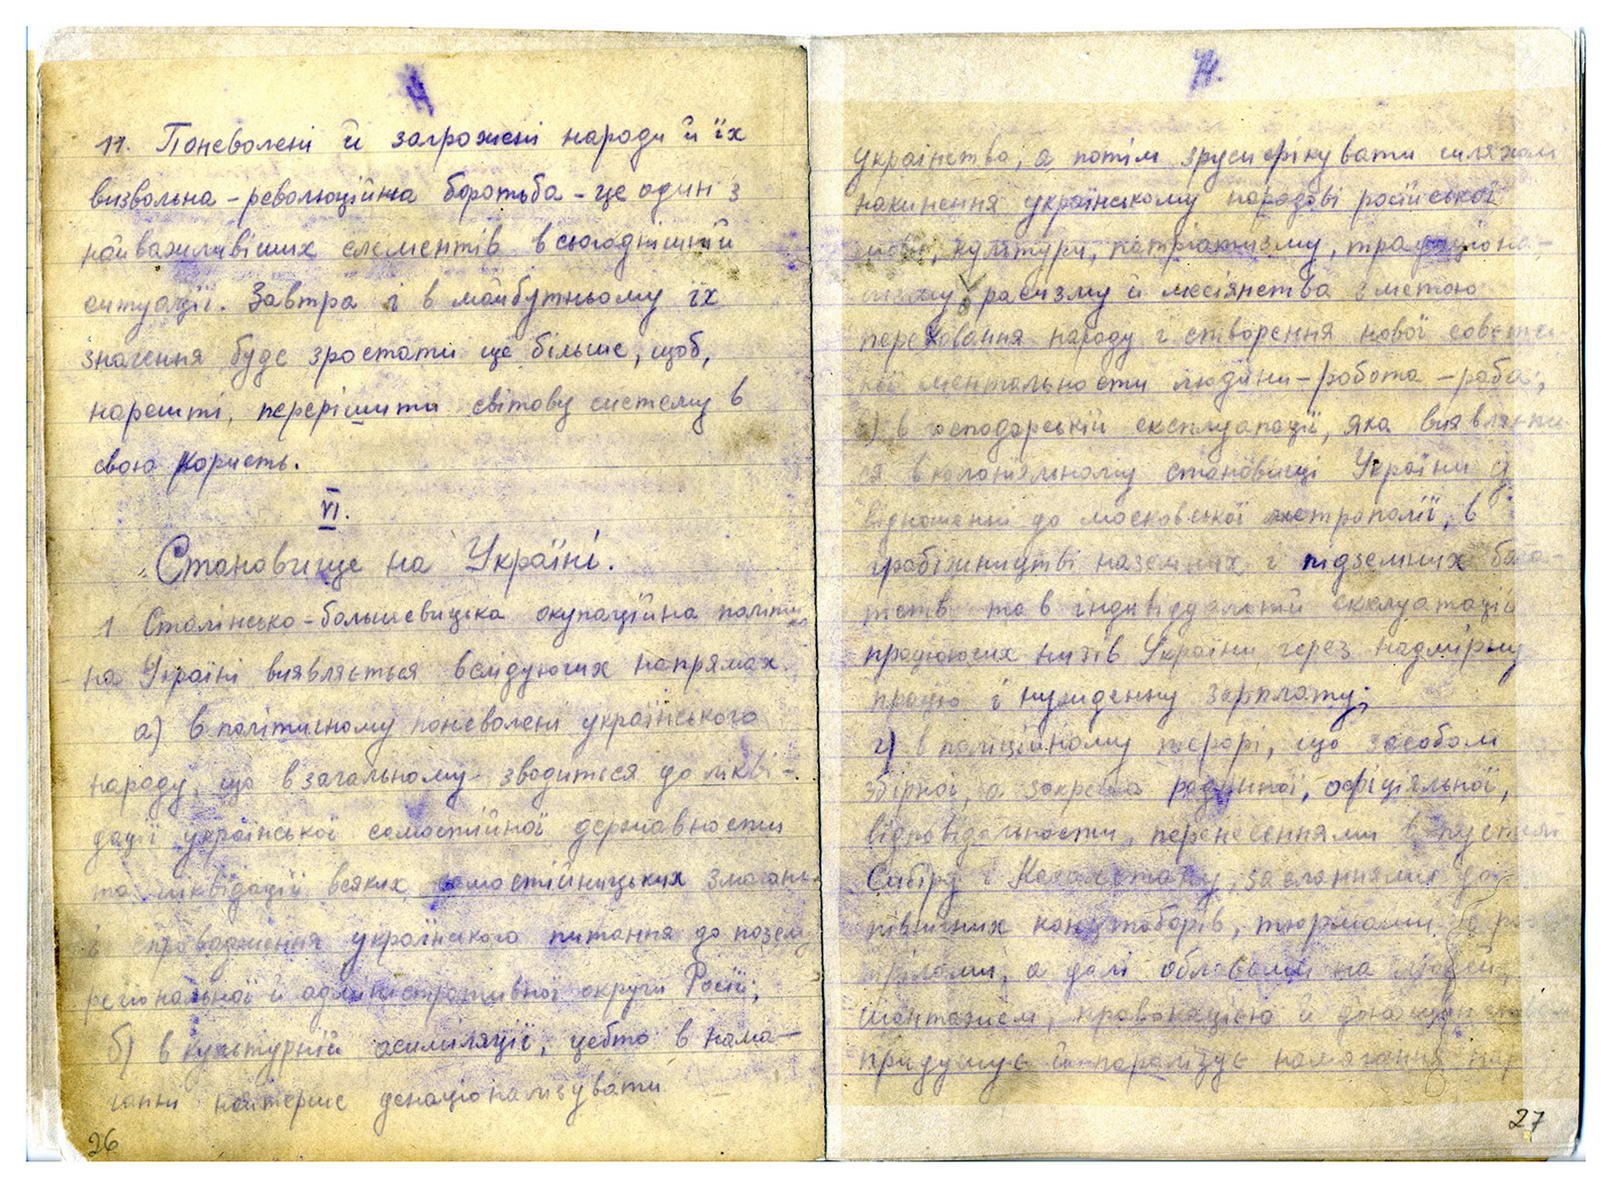 11. Поневолені й загрожені народи й їх
визвольна-революційна боротьба - це один з
найважливіших елементів в сьогоднішній
ситуації. Завтра і в майбутньому їх
значення буде зростати ще більше, щоб,
нарешті, перерішити світову систему в
свою користь.
VI.
Становище на Україні.
1 Сталінсько-большевицька окупаційна політика
на Україні виявляється в слідуючих напрямах.
а) в політичному поневолені українського
народу, що взагальному зводиться до лікві-
дації української самостійної державности
та ліквідації всяких самостійницьких змагань
і спровадження українського питання до позему
регіональної й адміністративної округи Росії;
б) в культурній асиміляції, цебто в нама-
ганні найперше денаціоналізувати
26
українство, а потім зрусифікувати шляхом
накинення українському народові російської
мови, культури, патріотизму, традиціона-
лізму, расизму й месіянства з метою
переховання народу і створення нової совєтсь-
кої ментальности людини-робота-раба;
в) в господарській експлуатації, яка виявляєть
ся в колоніяльному становищі України у
відношенні до московської метрополії, в
грабіжництві наземних і підземних бага-
тств та в індивідуальній експлуатації
працюючих низів України через надмірну
працю і нужденну зарплату;
г) в поліційному терорі, що засобом
збірної, а зокрема родинної, офіціяльної,
відповідальности, перенесеннями в пустині
Сибіру і Казахстану, засланнями до
північних концтаборів, тюрмами
а далі облавами на людей,
шантажем, провокацією й
придушує й паралізує намагання
27